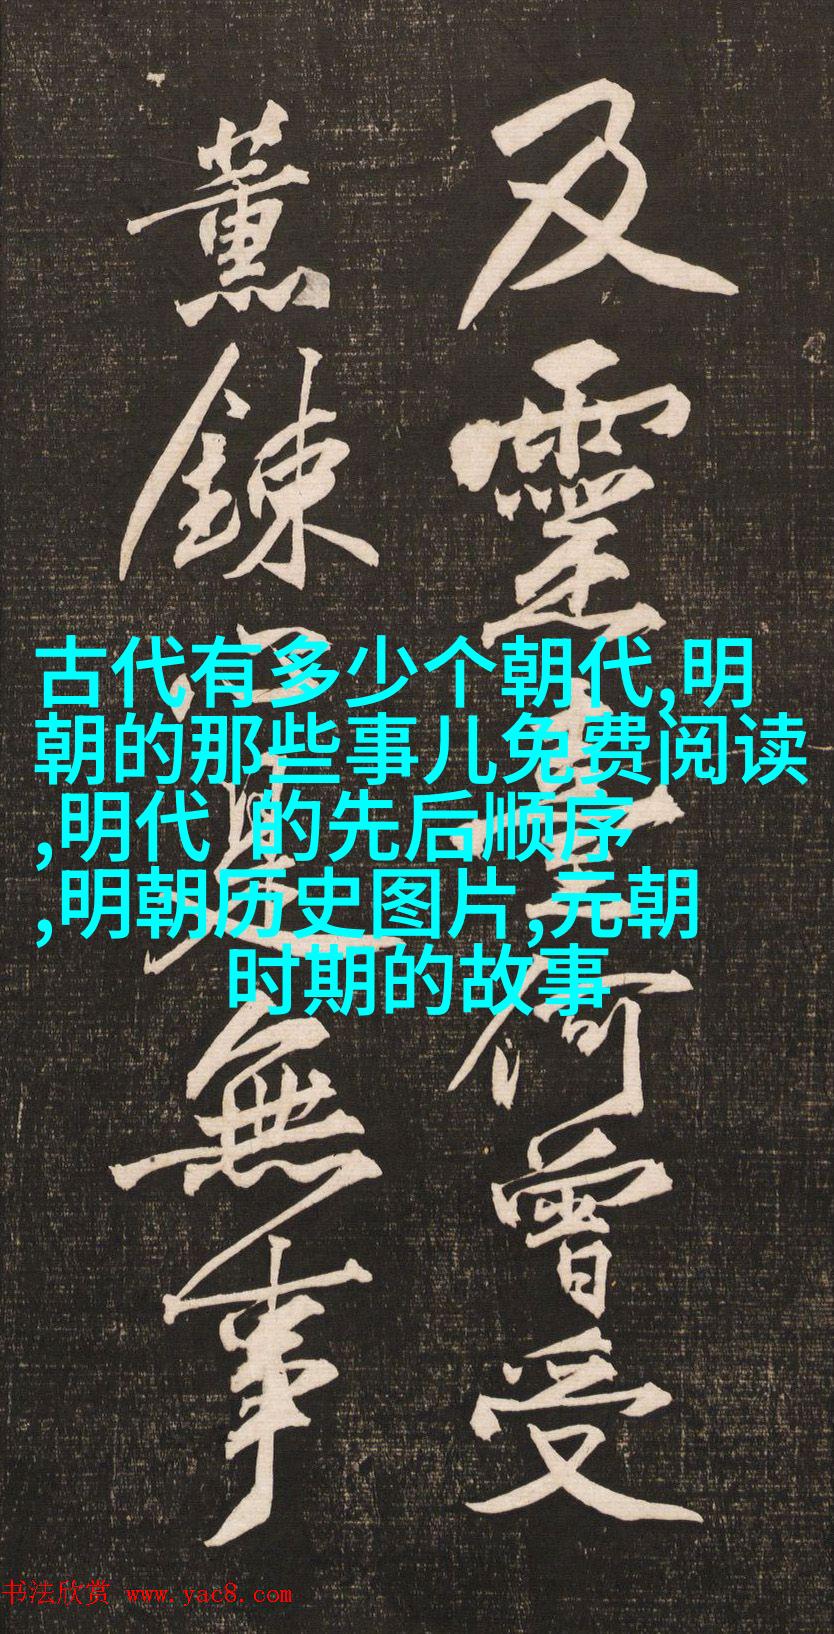 及靈臺何曾受
薰鍊是無事
古代有多少个朝代,明
朝的那些事儿免费阅读
,明代 的先后顺序
,明朝历史图片,元朝
时期的故事
书法欣赏 www.yac8.com